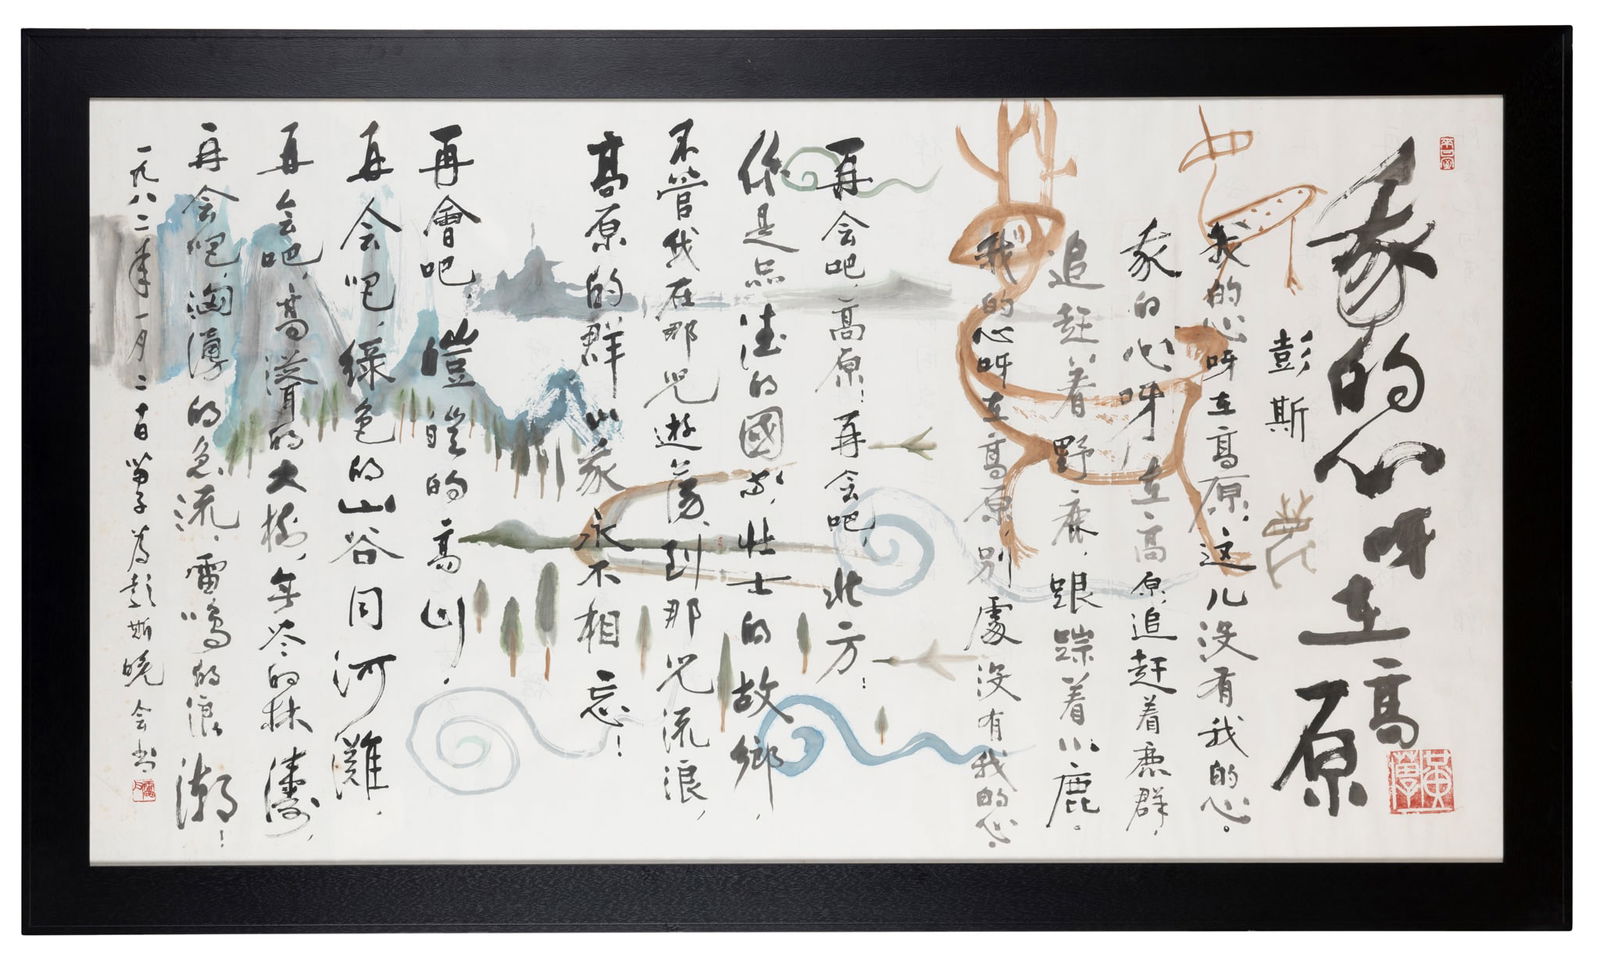 我的心呀在高原
彭斯
我的心呀在高原，这儿没有我的心。
我的心呀在高原，追赶着鹿群，
追赶着野鹿，跟踪着小鹿。
我的心呀在高原，别處没有我的心。
再会吧，高原！再会吧，北方！
你是品德的國家，壮士的故鄉，
不管我在那兒遊荡，到那兒流浪，
高原的群山我永不相忘！
再會吧，皚皚的高山，
再会吧，绿色的山谷同河灘，
再会吧，高聳的大樹，無尽的林涛，
再会吧，汹湧的急流，雷鳴的浪潮！
一九八二年一月二十日苗子为彭斯晚会书